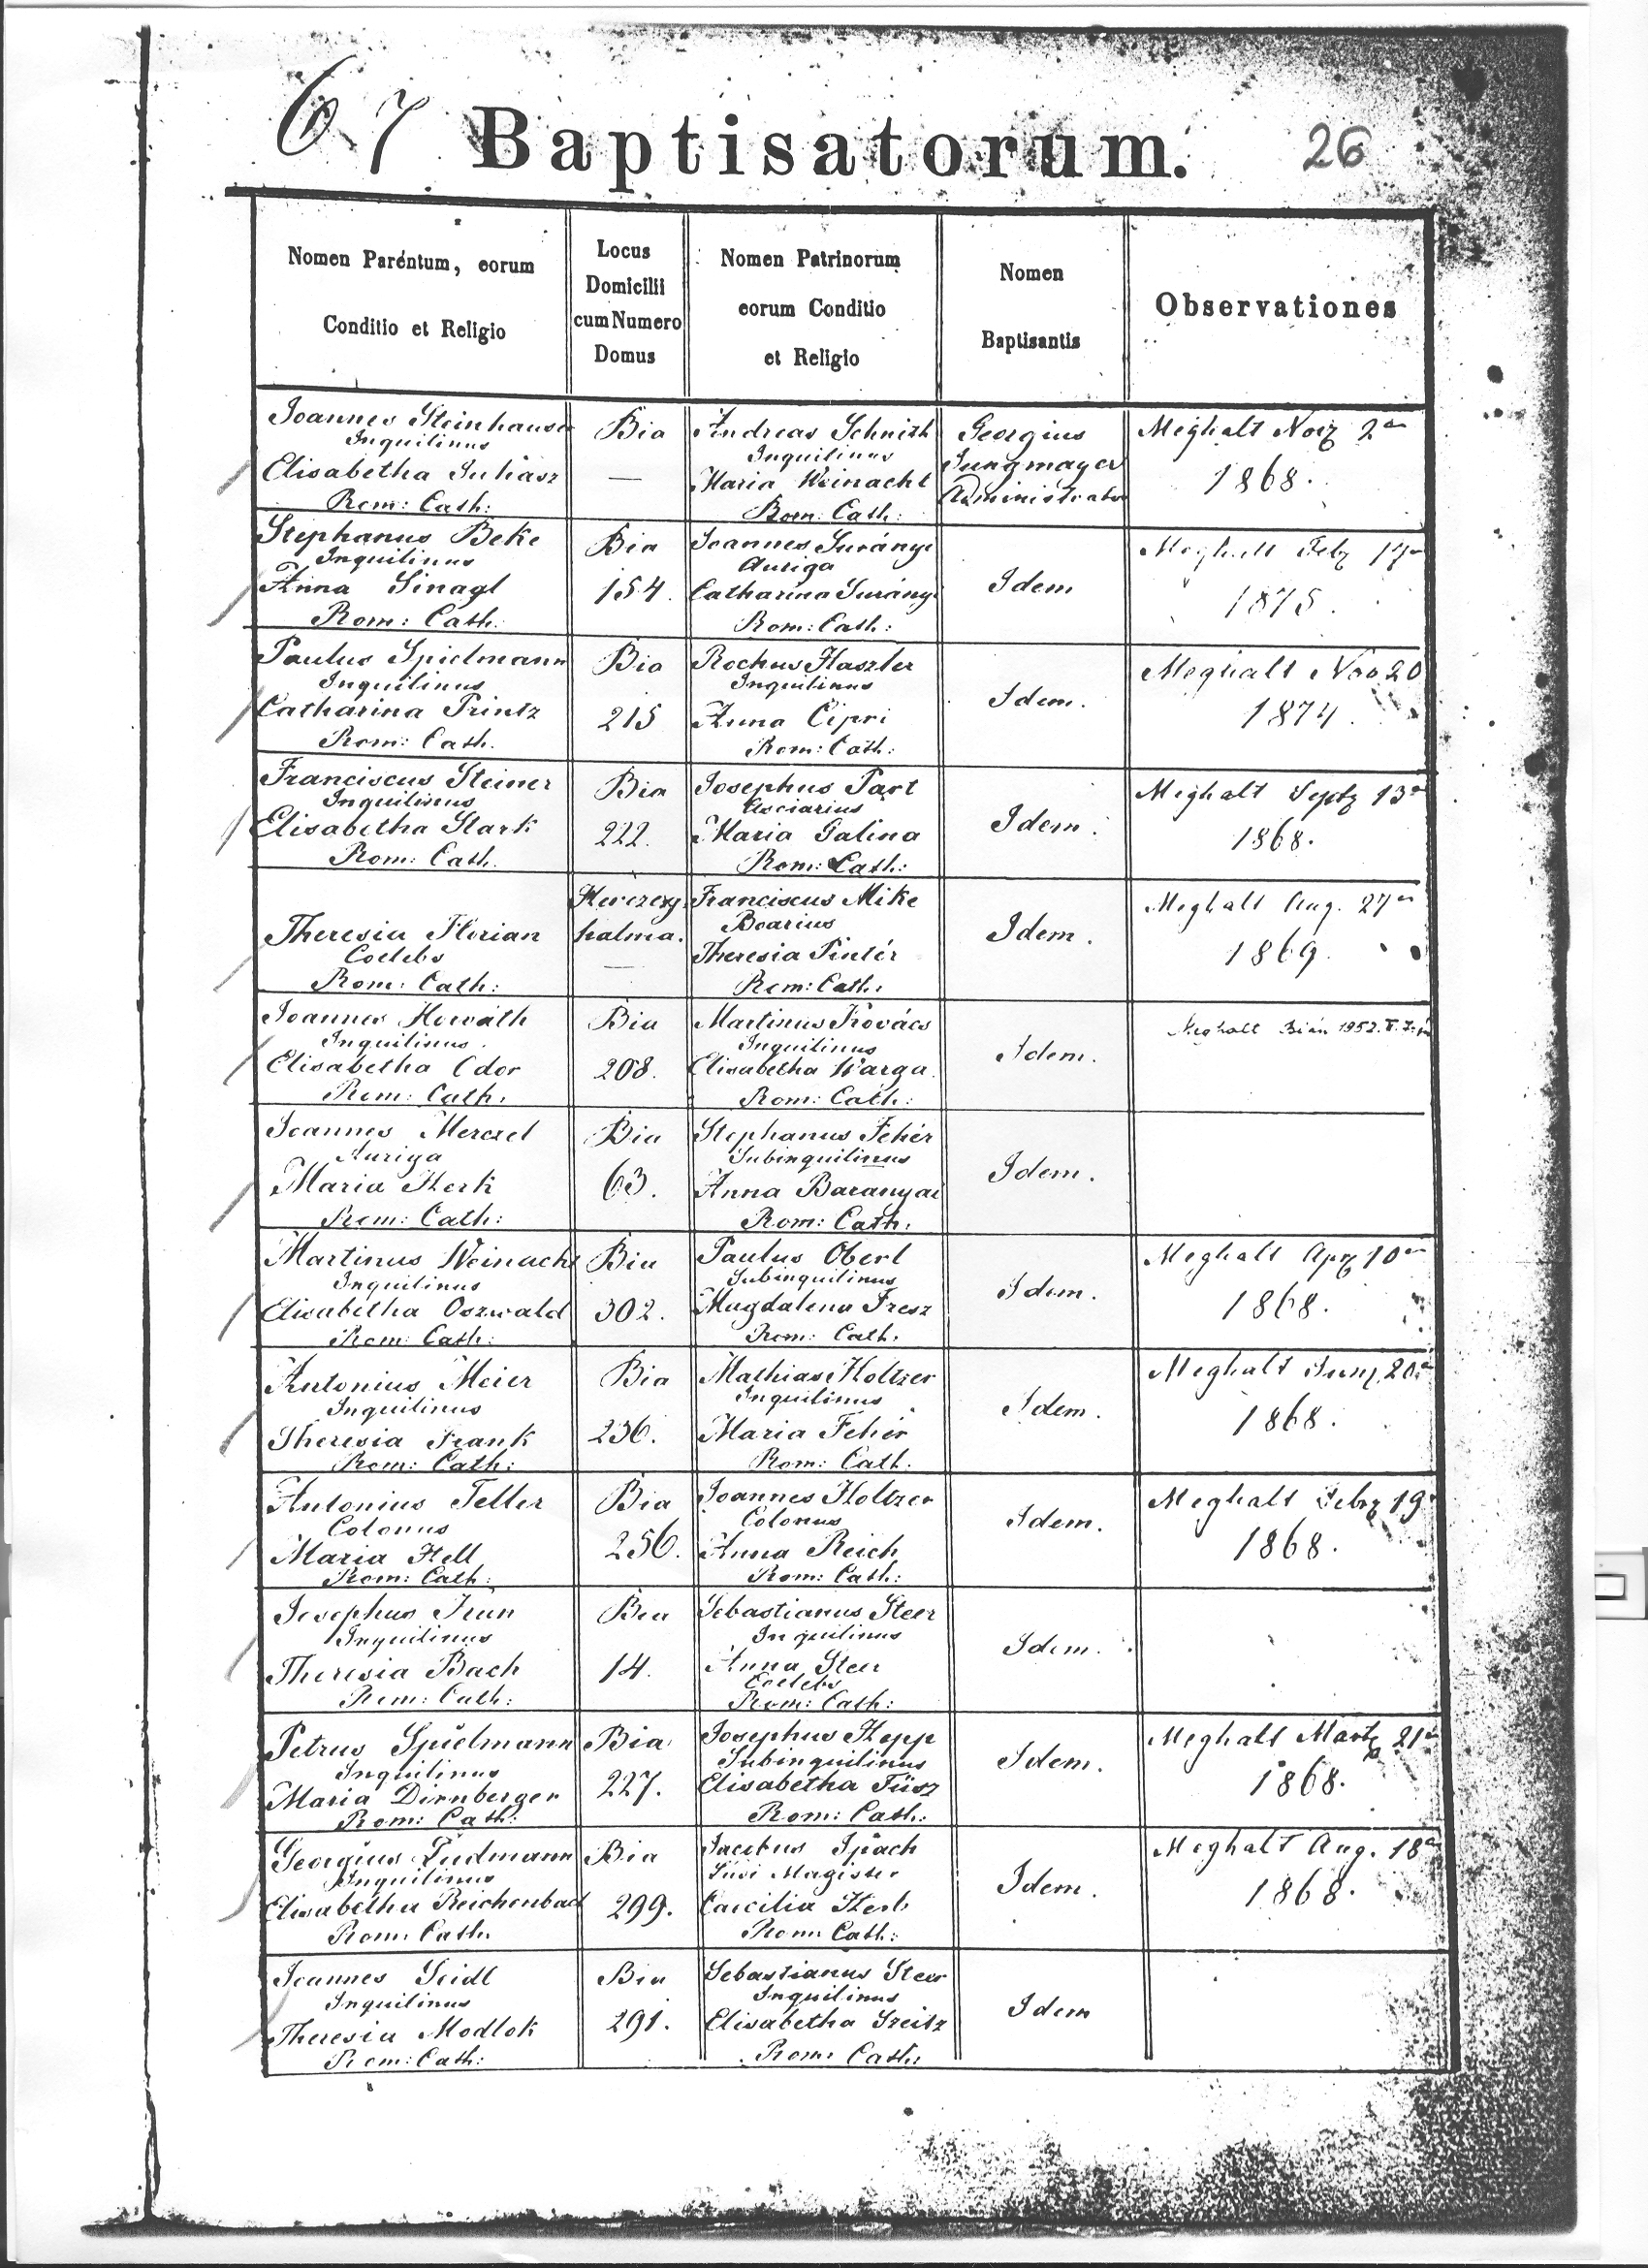 67 Baptisatorum. 26
Nomen Paréntum, eorum
Conditio et Religio
Locus
Domicilii
cum Numero
Domus
Nomen Patrinorum
eorum Conditio
et Religio
Nomen
Baptisantis
Observationes
Joannes Steinhauser
Inquilinus
Elisabetha Juhász
Rom: Cath:
Bia
—
Andreas Schnith
Inquilinus
Maria Weinacht
Rom: Cath:
Georgius
Jungmayer
Administrator
Meghalt
1868.
Stephanus Beke
Inquilinus
Anna Sinagl
Rom: Cath:
Bia
154.
Joannes Surányi
Auriga
Catharina Surányi
Rom: Cath:
Idem
Meghalt
1875.
Paulus Spielmann
Inquilinus
Catharina Printz
Rom: Cath.
Bia
215
Rochus Haszler
Inquilinus
Anna Cipri
Rom: Cath:
Idem.
Meghalt Nov 20
1874.
Franciscus Steiner
Inquilinus
Elisabetha Stark
Rom: Cath.
Bia
222.
Josephus Part
Asciarius
Maria Galina
Rom: Cath:
Idem.
Meghalt Septz 13a
1868.
Theresia Florian
Coelebs
Rom: Cath:
Herczeg
halma.
—
Franciscus Mike
Boarius
Theresia Pintér
Rom: Cath:
Idem.
Meghalt Aug. 27
1869.
Joannes Horváth
Inquilinus.
Elisabetha Odor
Rom: Cath:
Bia
208.
Martinus Kovács
Inquilinus
Elisabetha Varga
Rom: Cath:
Idem.
Meghalt Bián 1952.
Joannes Merczel
Auriga
Maria Herk
Rom: Cath:
Bia
63.
Stephanus Fehér
Subinquilinus
Anna Baranyai
Rom: Cath:
Idem.
Martinus Weinacht
Inquilinus
Elisabetha Oszwald
Rom: Cath:
Bia
302.
Paulus Oberl
Subinquilinus
Magdalena Fresz
Rom: Cath.
Idem.
Meghalt Aprz 10
1868.
Antonius Meier
Inquilinus
Theresia Frank
Rom: Cath:
Bia
236.
Mathias Holtzer
Inquilinus
Maria Fehér
Rom: Cath.
Idem.
Meghalt 20
1868.
Antonius Teller
Colonus
Maria Hell
Rom: Cath:
Bia
256.
Joannes Holtzer
Colonus
Anna Reich
Rom: Cath:
Idem.
Meghalt Febrz 19
1868.
Josephus
Inquilinus
Theresia Bach
Rom: Cath:
Bia
14.
Sebastianus Steer
Inquilinus
Anna Steer
Coelebs
Rom: Cath:
Idem.
Petrus Spielmann
Inquilinus
Maria Dirnberger
Rom: Cath:
Bia
227.
Josephus Hepp
Subinquilinus
Elisabetha Füsz
Rom: Cath:
Idem.
Meghalt Martz 21
1868.
Georgius
Inquilinus
Elisabetha Reichenbach
Rom: Cath.
Bia
299.
Jacobus Spach
Magister
Caecilia Herb
Rom: Cath:
Idem.
Meghalt Aug. 18a
1868.
Joannes Seidl
Inquilinus
Theresia Modlok
Rom: Cath:
Bia
291.
Sebastianus Steer
Inquilinus
Elisabetha Szeitz
Rom: Cath:
Idem